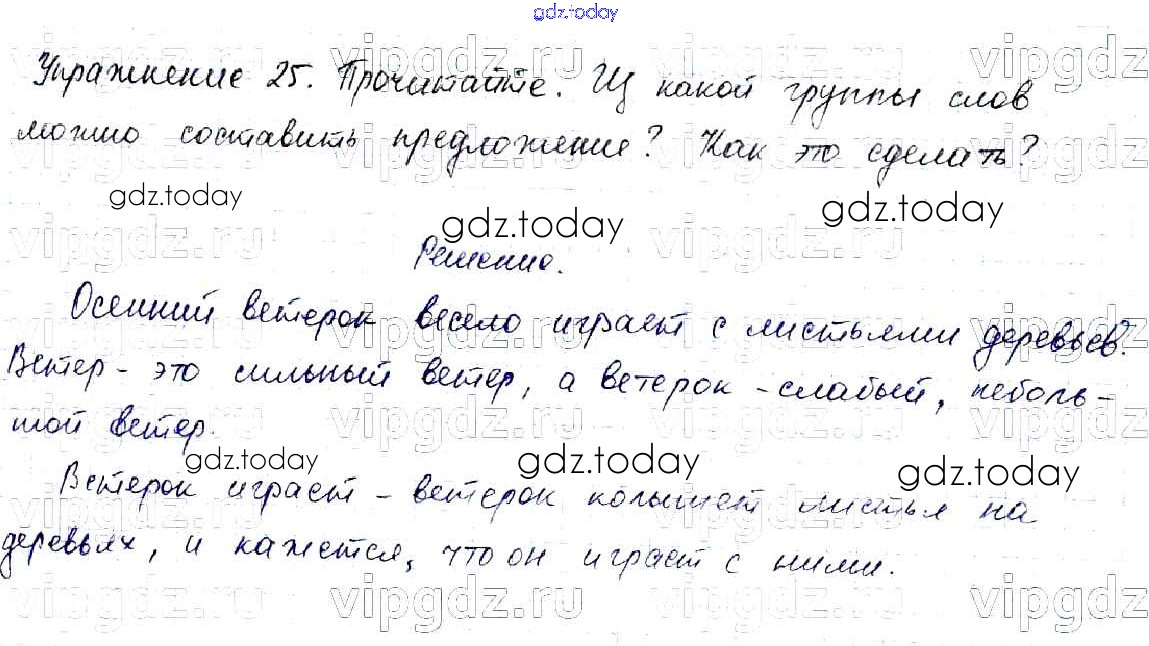 gdz.today
Упражнение 25. Прочитайте. Из какой группы слов
можно составить предложение? Как это сделать?
gdz.today gdz.today gdz.today
Решение.
Осенний ветерок весело играет с листьями деревьев.
Ветер - это сильный ветер, а ветерок - слабый, неболь-
шой ветер.
gdz.today gdz.today gdz.today
Ветерок играет - ветерок колышет листья на
деревьях, и кажется, что он играет с ними.
vipgdz.ru vipgdz.ru vipgdz.ru vipgdz.ru